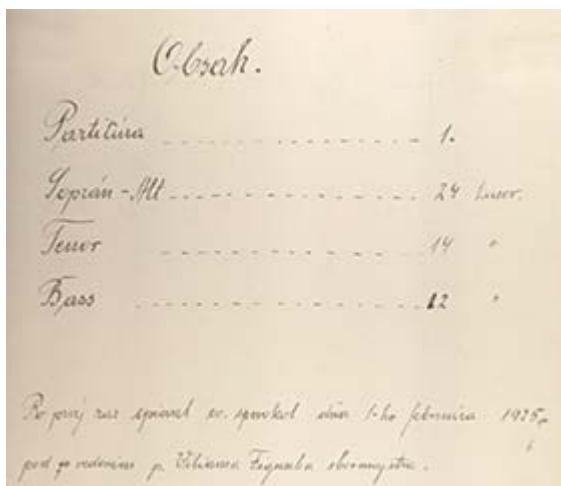 Obsah.
Partitúra 1.
Soprán-Alt 24 husov.
Tenor 14 "
Bass 12 "
Po prvý raz spieval sv. spevokol dňa 1-ho februára 1925
pod vedením p. Viliama Figuša sbormajstra.